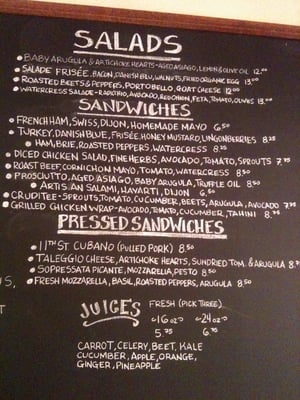 SALADS
• BABY ARUGULA & ARTICHOKE HEARTS - AGED ASIAGO, LEMON & OLIVE OIL 12.00
• SALADE FRISÉE, BACON, DANISH BLU, WALNUTS, FRIED ORGANIC EGG 13.00
• ROASTED BEETS & PEPPERS, PORTOBELLO, GOAT CHEESE 12.00
• WATERCRESS SALADE - AVOCADO, RED ONION, FETA, TOMATO, OLIVES 13.00
SANDWICHES
• FRENCH HAM, SWISS, DIJON, HOMEMADE MAYO 6.50
• TURKEY, DANISH BLUE, FRISÉE, HONEY MUSTARD, LINGONBERRIES 8.25
• HAM, BRIE, ROASTED PEPPERS, WATERCRESS 8.25
• DICED CHICKEN SALAD, FINE HERBS, AVOCADO, TOMATO, SPROUTS 7.95
• ROAST BEEF, CORNICHON MAYO, TOMATO, WATERCRESS 8.50
• PROSCIUTTO, AGED ASIAGO, BABY ARUGULA, TRUFFLE OIL 8.50
• ARTISAN SALAMI, HAVARTI, DIJON 6.50
• CRUDITEE - SPROUTS, TOMATO, CUCUMBER, BEETS, ARUGULA, AVOCADO 7.95
• GRILLED CHICKEN WRAP - AVOCADO, TOMATO, CUCUMBER, TAHINI 8.95
PRESSED SANDWICHES
• 11TH ST CUBANO (PULLED PORK) 8.50
• TALEGGIO CHEESE, ARTICHOKE HEARTS, SUNDRIED TOM. & ARUGULA 8.75
• SOPRESSATA PICANTE, MOZZARELLA, PESTO 8.50
• FRESH MOZZARELLA, BASIL, ROASTED PEPPERS, ARUGULA 8.50
JUICES FRESH (PICK THREE)
16 OZ 24 OZ
5.75 6.75
CARROT, CELERY, BEET, KALE
CUCUMBER, APPLE, ORANGE,
GINGER, PINEAPPLE